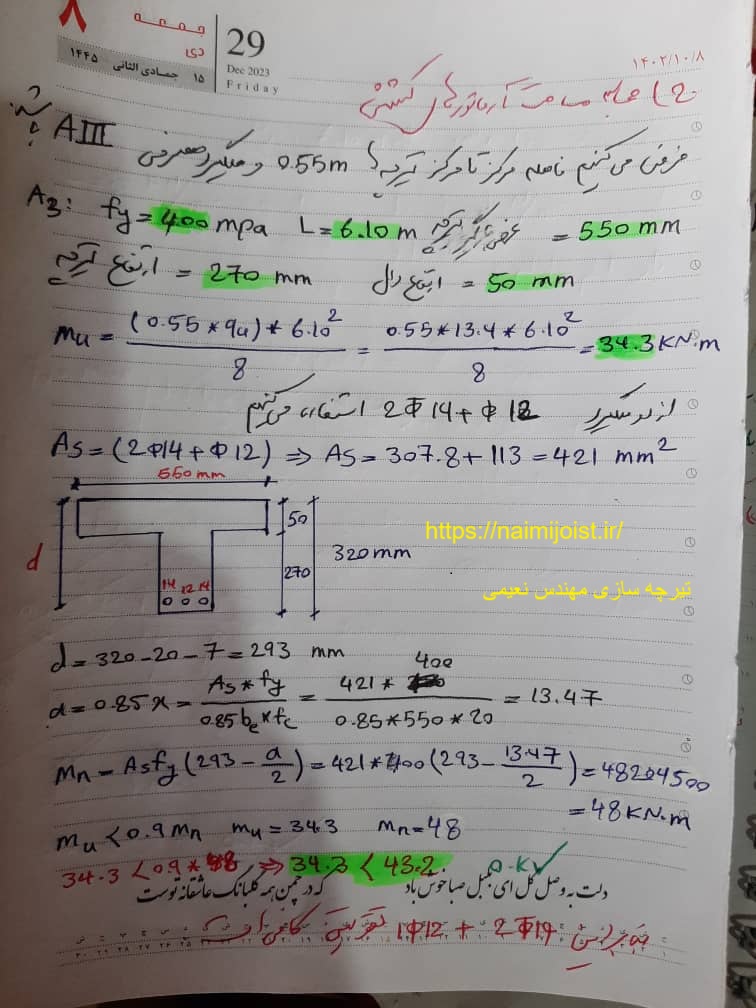 ۸
جمعه
دی
۱۵ جمادی الثانی ۱۴۴۵
29
Dec 2023
Friday
۱۴۰۲/۱۰/۸
2) محاسبه مساحت آرماتورهای کششی
فرض می‌کنیم فاصله مرکز تا مرکز تیرچه 0.55m و میلگرد مصرفی
AIII
A3: fy = 400 mpa L = 6.10 m عرض تاثیر تیرچه = 550 mm
ارتفاع تیرچه = 270 mm ارتفاع دال = 50 mm
mu = (0.55*qu)*6.10² / 8 = 0.55*13.4*6.10² / 8 = 34.3 KN.m
از دو میلگرد 2Φ14+Φ12 استفاده می‌کنیم
AS = (2Φ14+Φ12) ⇒ AS = 307.8+113 = 421 mm²
550 mm
d
50
270
320mm
14 12 14
https://naimijoist.ir/
تیرچه سازی مهندس نعیمی
d = 320-20-7 = 293 mm
a = 0.85x = As*fy / 0.85be*fc = 421*400 / 0.85*550*20 = 13.47
Mn = Asfy(293-a/2) = 421*400(293-13.47/2) = 48204500
= 48 KN.m
mu < 0.9Mn mu = 34.3 Mn = 48
34.3 < 0.9*48 ⇒ 34.3 < 43.2 O.K ✓
دلت به وصل گل ای بلبل صبا خوش باد
که در چمن همه گلبانگ عاشقانه توست
1Φ12 + 2Φ14